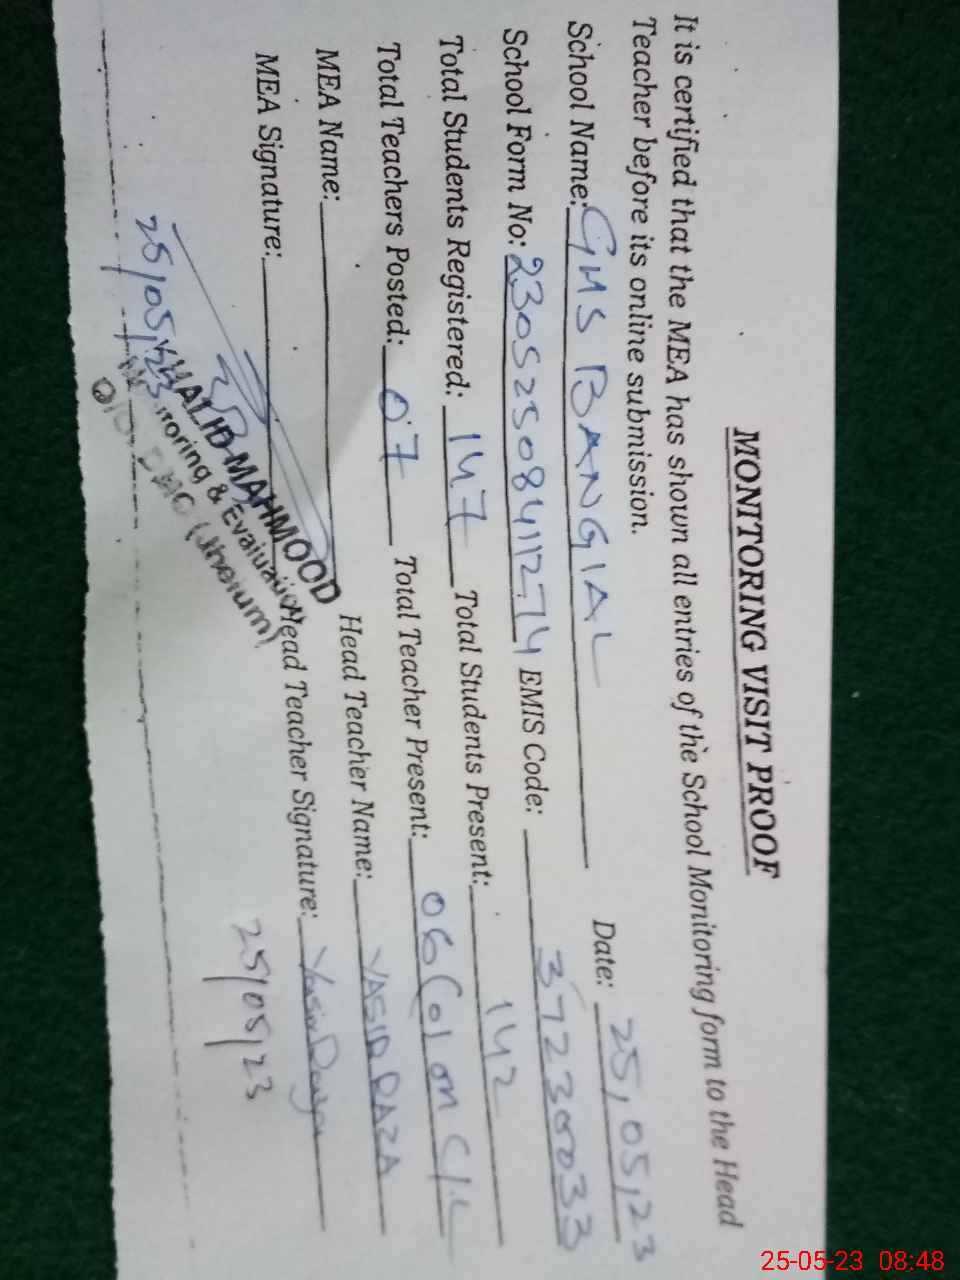 MONITORING VISIT PROOF
It is certified that the MEA has shown all entries of the School Monitoring form to the Head
Teacher before its online submission.
School Name: GHS BANGIAL Date: 25,05,23
School Form No: 230525084111274 EMIS Code: 37230033
Total Students Registered: 147 Total Students Present: 142
Total Teachers Posted: 07 Total Teacher Present: 06 (01 on C/L
MEA Name: Head Teacher Name: YASIR RAZA
MEA Signature: Head Teacher Signature:
KHALID MAHMOOD
Monitoring & Evaluation
O/O, DMO (Jhelum)
25/05/23
25/05/23
25-05-23 08:48